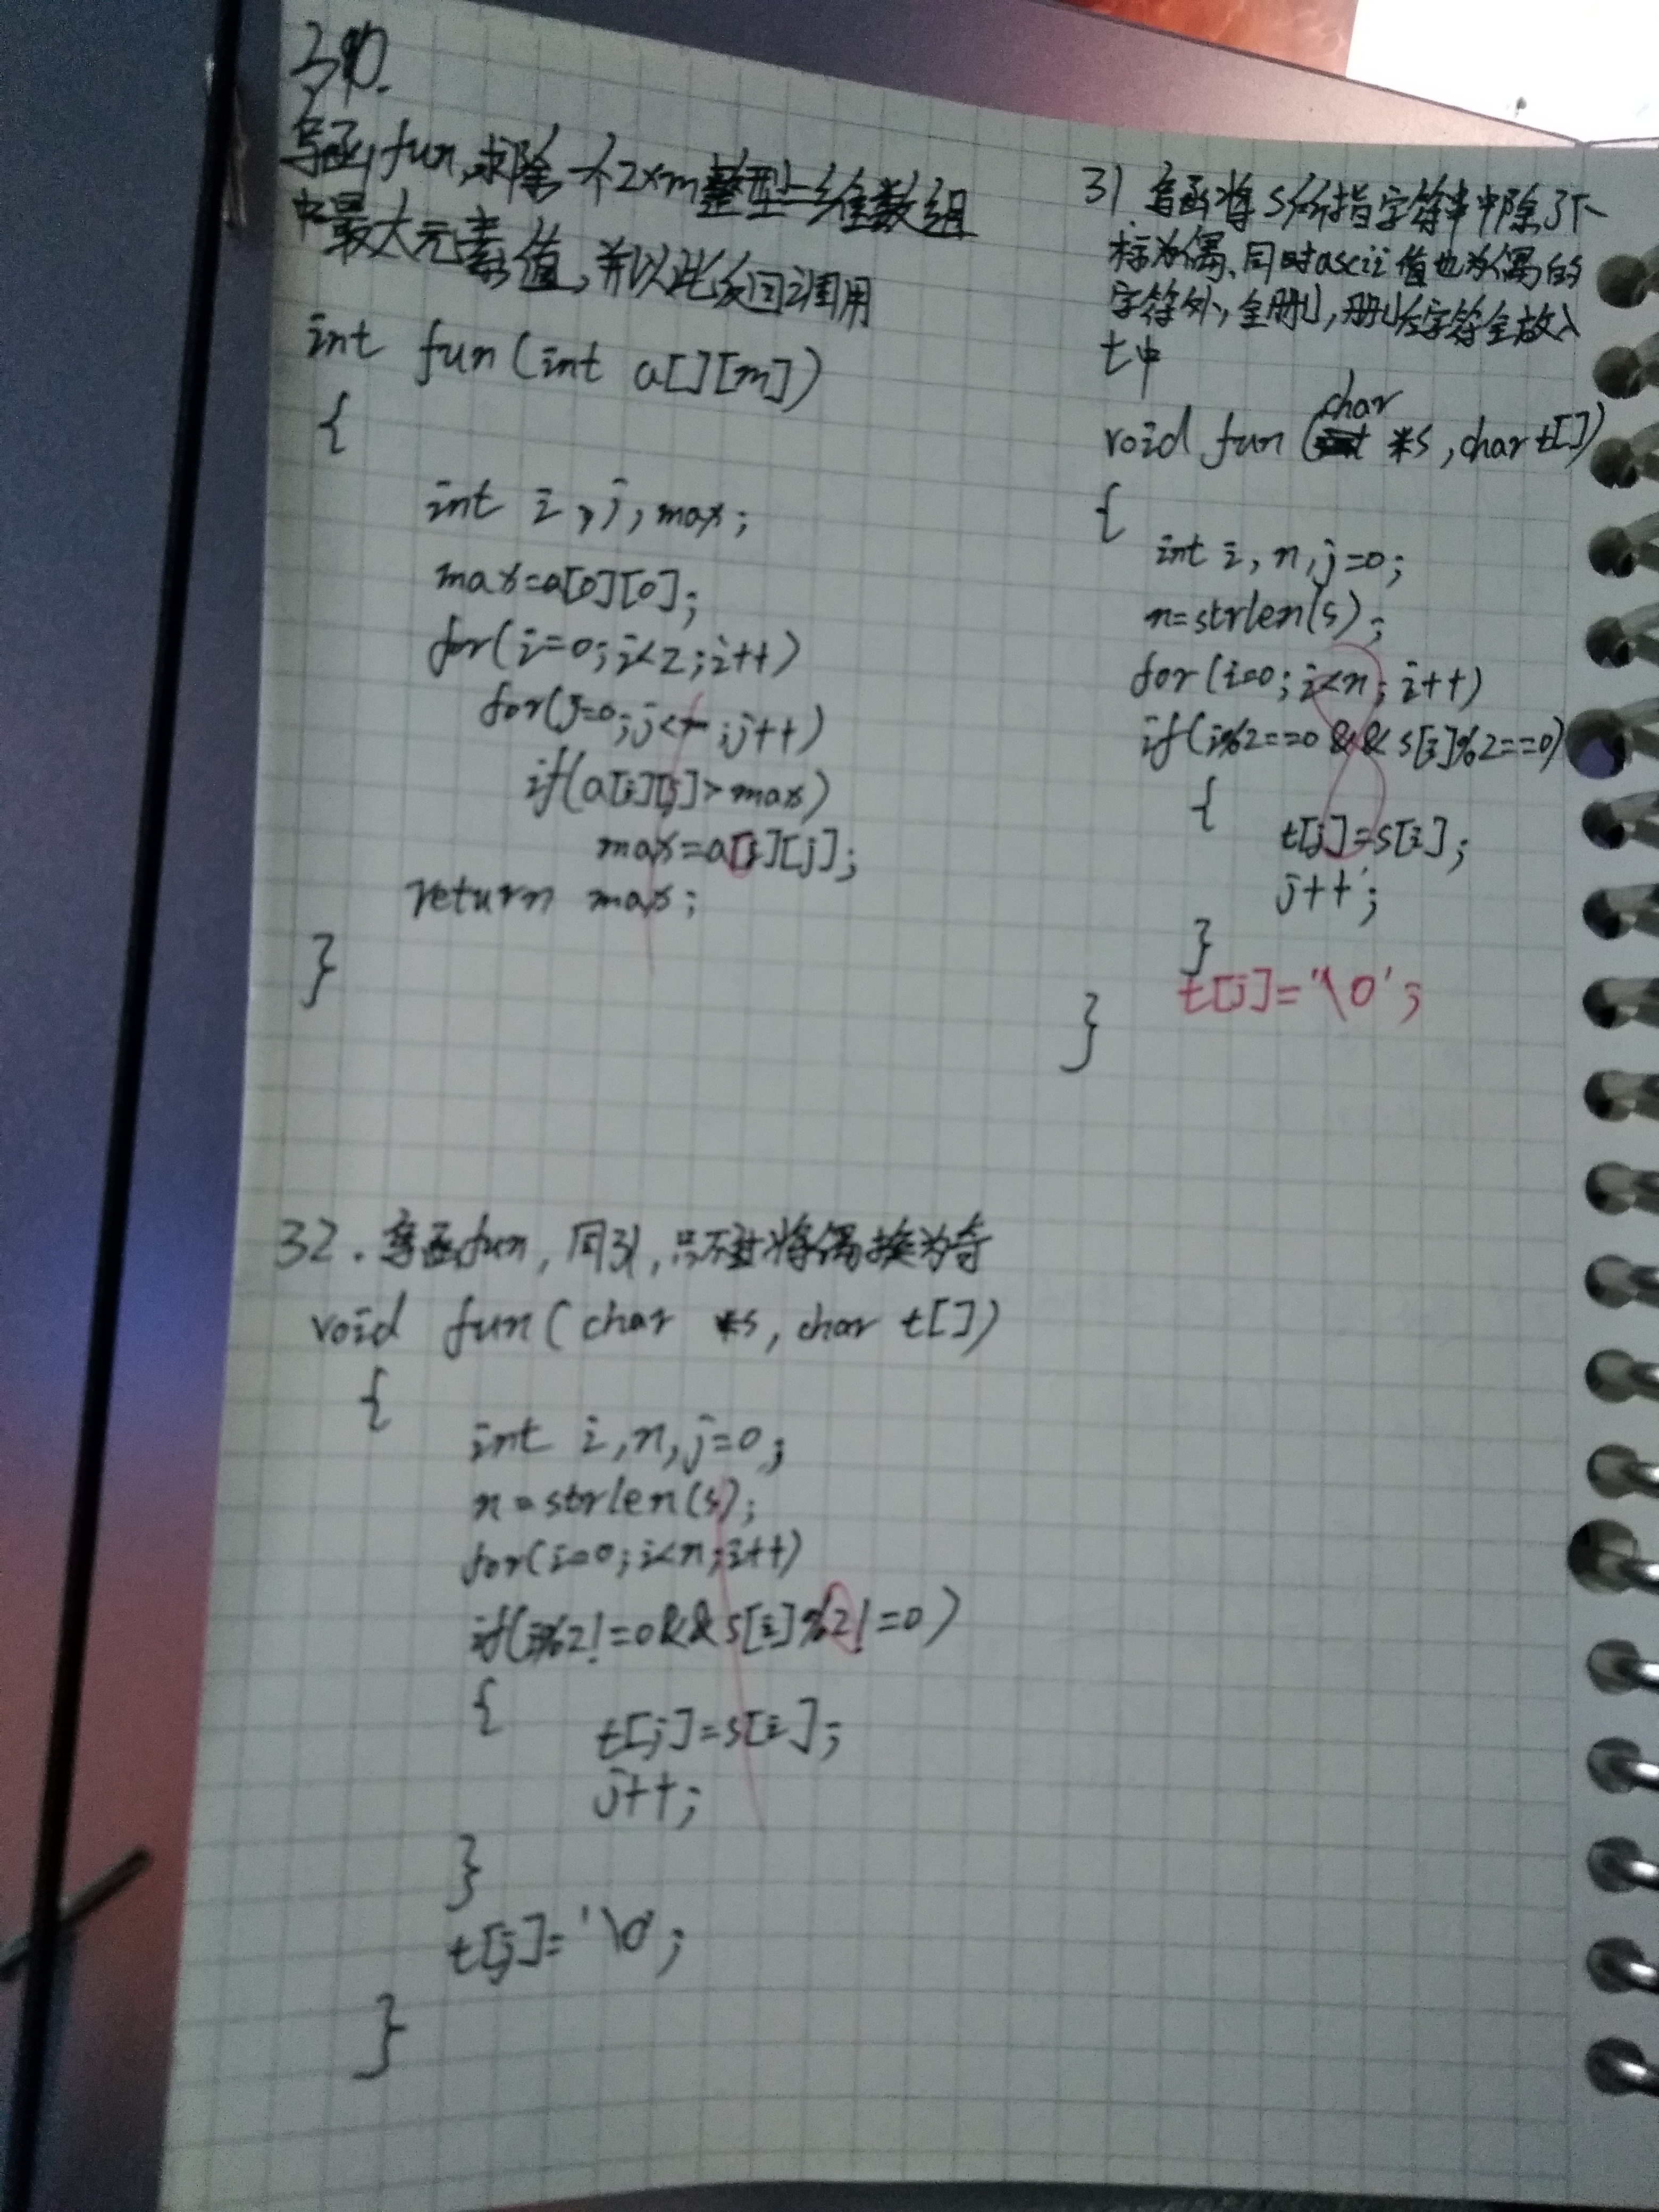 30.
写函fun,求除一个2×m整型二维数组
中最大元素值,并以此返回调用
int fun(int a[][m])
{
int i,j,max;
max=a[0][0];
for(i=0;i<2;i++)
for(j=0;j< ;j++)
if(a[i][j]>max)
max=a[i][j];
return max;
}
31 写函将s所指字符串中除了下
标为偶、同时ascii值也为偶的
字符外,全删,删后字符全放入
t中
void fun(char *s,char t[])
{
int i,n,j=0;
n=strlen(s);
for(i=0;i<n;i++)
if(i%2==0&&s[i]%2==0)
{
t[j]=s[i];
j++;
}
t[j]='\0';
}
32.写函fun,同31,只不过将偶换为奇
void fun(char *s,char t[])
{
int i,n,j=0;
n=strlen(s);
for(i=0;i<n;i++)
if(i%2!=0&&s[i]%2!=0)
{
t[j]=s[i];
j++;
}
t[j]='\0';
}